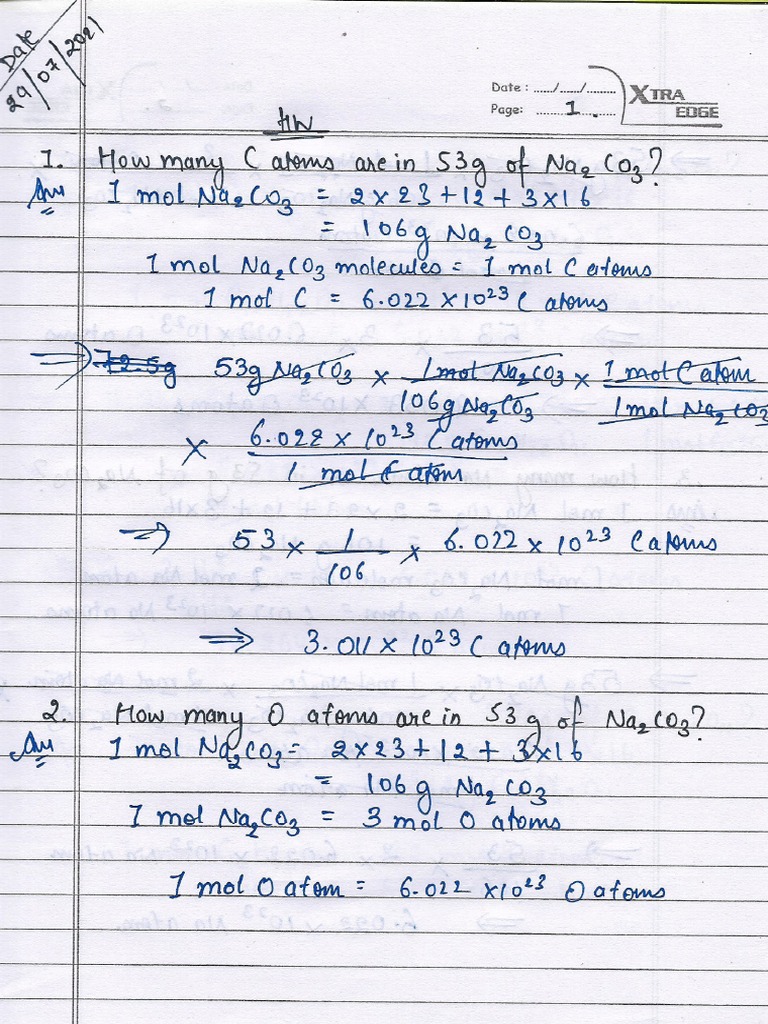 Date
29/07/2021
Date : ...../...../........
Page: 1.
XTRA EDGE
HW
1. How many C atoms are in 53g of Na2CO3?
Ans 1 mol Na2CO3 = 2×23+12+3×16
= 106g Na2CO3
1 mol Na2CO3 molecules = 1 mol C atoms
1 mol C = 6.022 ×10²³ C atoms
⇒ 72.5g 53g Na2CO3 × 1 mol Na2CO3 / 106g Na2CO3 × 1 mol C atom / 1 mol Na2CO3
× 6.022 × 10²³ C atoms / 1 mol C atom
⇒ 53 × 1/106 × 6.022 × 10²³ C atoms
⇒ 3.011 × 10²³ C atoms
2. How many O atoms are in 53 g of Na2CO3?
Ans 1 mol Na2CO3= 2×23+12+3×16
= 106 g Na2CO3
1 mol Na2CO3 = 3 mol O atoms
1 mol O atom = 6.022 ×10²³ O atoms